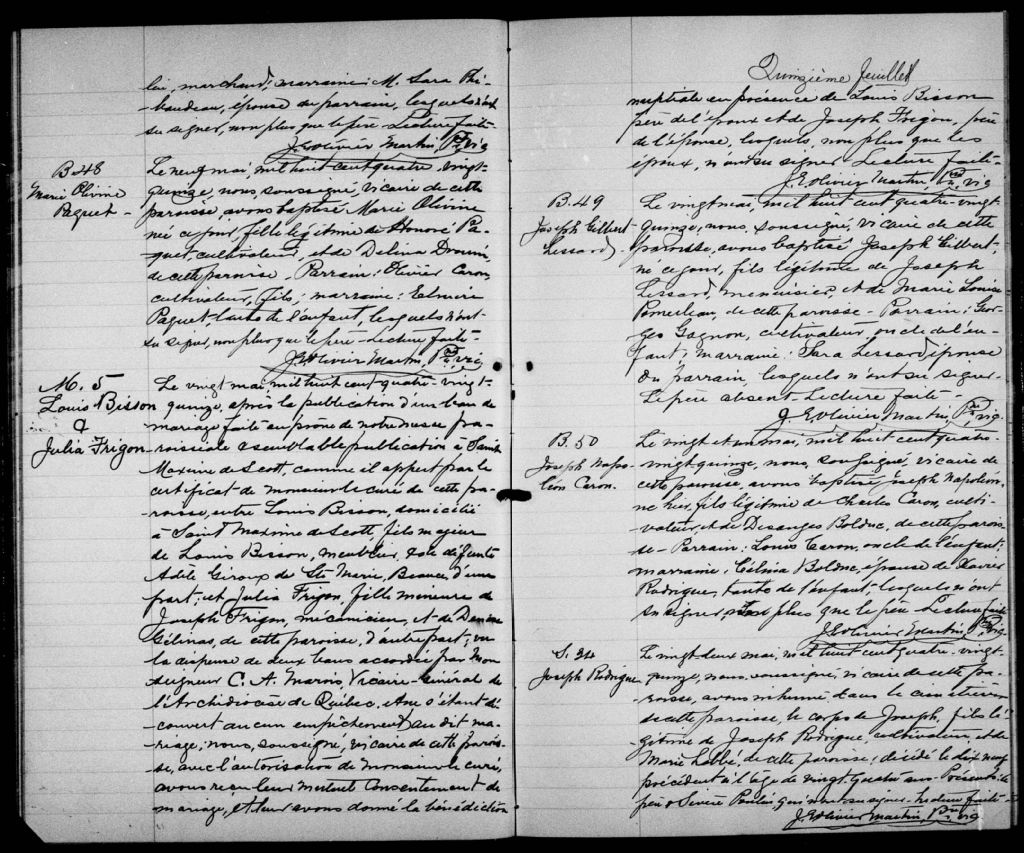 lui, marchand; marraine: M. Sara Thi-
baudeau, épouse du parrain, lesquels n'ont
su signer, non plus que le père. Lecture faite.
J. E. Olivier Martin, Ptre, vic
B. 48
Marie Olivine
Paquet
Le neuf mai, mil huit cent quatre-vingt-
quinze, nous, soussigné, vicaire de cette
paroisse, avons baptisé Marie Olivine
né ce jour, fille légitime de Honoré Pa-
quet, cultivateur, et de Delima Drouin,
de cette paroisse. Parrain: Olivier Caron,
cultivateur, (fils); marraine: Elmire
Paquet, tante de l'enfant, lesquels n'ont
su signer, non plus que le père. Lecture faite.
J. E. Olivier Martin, Ptre, vic
M. 5
Louis Bisson
&
Julia Frigon
Le vingt mai mil huit cent quatre-vingt-
quinze, après la publication d'un ban de
mariage faite au prône de notre messe pa-
roissiale et semblable publication à Saint
Maxime de Scott, comme il appert par le
certificat de monsieur le curé de cette pa-
roisse, entre Louis Bisson, domicilié
à Saint Maxime de Scott, fils majeur
de Louis Bisson, meublier, et de défunte
Adèle Giroux de Ste Marie, Beauce, d'une
part; et Julia Frigon, fille mineure de
Joseph Frigon, mécanicien, et de
Gélinas, de cette paroisse, d'autre part; vu
la dispense de deux bans accordée par Mon
seigneur C. A. Marois, Vicaire-Général de
l'Archidiocèse de Québec, et ne s'étant dé-
couvert aucun empêchement au dit ma-
riage; nous, soussigné, vicaire de cette parois-
se, avec l'autorisation de monsieur le curé,
avons reçu leur mutuel consentement de
mariage, et leur avons donné la bénédiction
Quinzième feuillet
nuptiale en présence de Louis Bisson
père de l'époux et de Joseph Frigon, père
de l'épouse, lesquels, non plus que les
époux, n'ont su signer. Lecture faite.
J. E. Olivier Martin, Ptre, vic
B. 49
Joseph Gilbert
Lessard
Le vingt mai, mil huit cent quatre-vingt
quinze, nous, soussigné, vicaire de cette
paroisse, avons baptisé Joseph Gilbert,
né ce jour, fils légitime de Joseph
Lessard, menuisier, et de Marie Louise
Pomerleau, de cette paroisse. Parrain: Geor-
ges Gagnon, cultivateur, oncle de l'en-
fant; marraine: Sara Lessard, épouse
du parrain, lesquels n'ont su signer.
Le père absent. Lecture faite.
J. E. Olivier Martin, Ptre, vic
B. 50
Joseph Napo-
léon Caron.
Le vingt et un mai, mil huit cent quatre-
vingt quinze, nous, soussigné, vicaire de
cette paroisse, avons baptisé Joseph Napoléon,
né hier, fils légitime de Charles Caron, culti-
vateur, et de Desanges Bolduc, de cette parois-
se. Parrain: Louis Caron, oncle de l'enfant;
marraine: Célina Bolduc, épouse de Xavier
Rodrigue, tante de l'enfant, lesquels n'ont
su signer, non plus que le père. Lecture faite
J. E. Olivier Martin, Ptre, vic
S. 34
Joseph Rodrigue
Le vingt deux mai, mil huit cent quatre-vingt-
quinze, nous, soussigné, vicaire de cette pa-
roisse, avons inhumé dans le cimetière
de cette paroisse, le corps de Joseph, fils lé-
gitime de Joseph Rodrigue, cultivateur, et de
Marie Labbé, de cette paroisse; décédé le dix neuf
précédent à l'âge de vingt quatre ans. Présents: le
père & Sévère Poulin, qui n'ont su signer. Lecture faite.
J. E. Olivier Martin, Ptre, vic